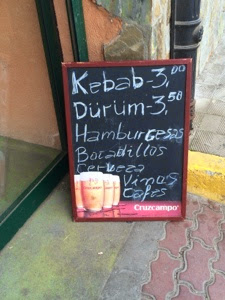 Kebab-3,00
Dürüm-3,50
Hamburgesas
Bocadillos
Cerveza
Vinos
Cafes
Cruzcampo